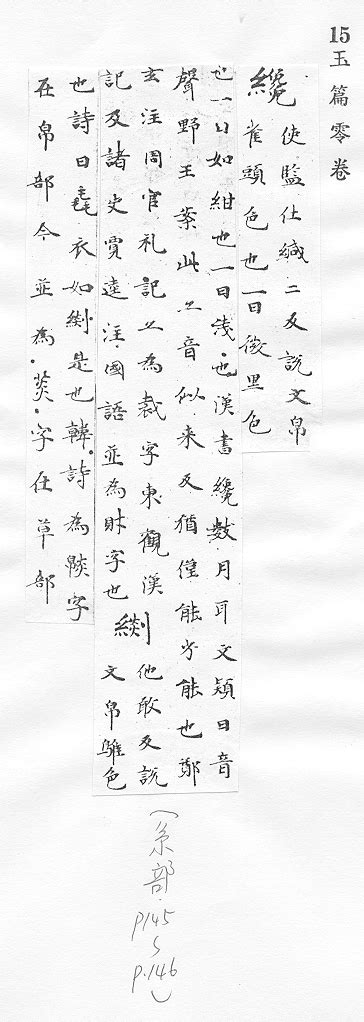 15 玉篇零卷
纔
使監仕緘二反說文帛
雀頭色也一曰微黑色
也一曰如紺也一曰浅也漢書纔數月耳文穎曰音
聲野王案此亦音似来反猶僅能劣能也鄭
玄注周官礼記亦為裁字東觀漢
記及諸史賈逵注國語並為財字也
𦃖
他敢反說
文帛騅色
也詩曰毳衣如𦃖是也韓詩為字
在帛部今並為菼字在草部
(糸部 p145~p.146)